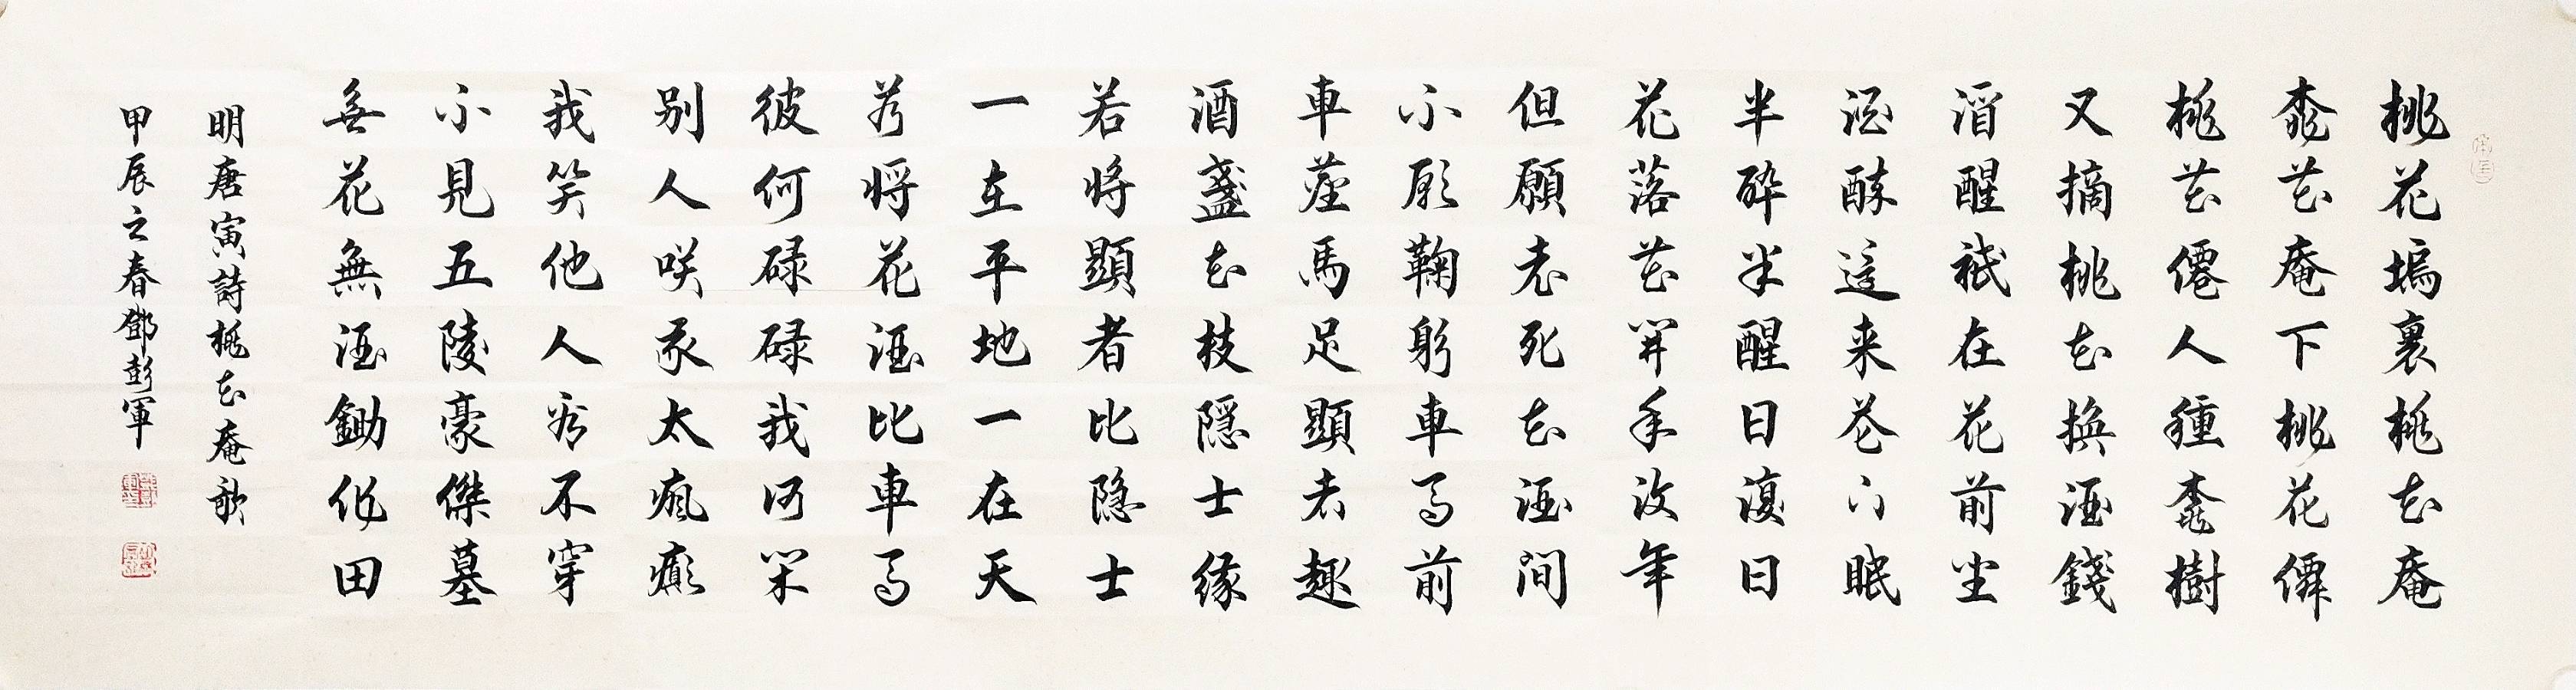 桃花塢裏桃花庵
桃花庵下桃花僊
桃花僊人種桃樹
又摘桃花換酒錢
酒醒祗在花前坐
酒醉還来花下眠
半醉半醒日復日
花落花開年復年
但願老死花酒間
不願鞠躬車馬前
車塵馬足顯者趣
酒盞花枝隱士緣
若將顯者比隱士
一在平地一在天
若將花酒比車馬
彼何碌碌我何閑
别人咲我太瘋癲
我笑他人看不穿
不見五陵豪傑墓
無花無酒鋤作田
明唐寅詩桃花庵歌
甲辰之春鄧彭軍